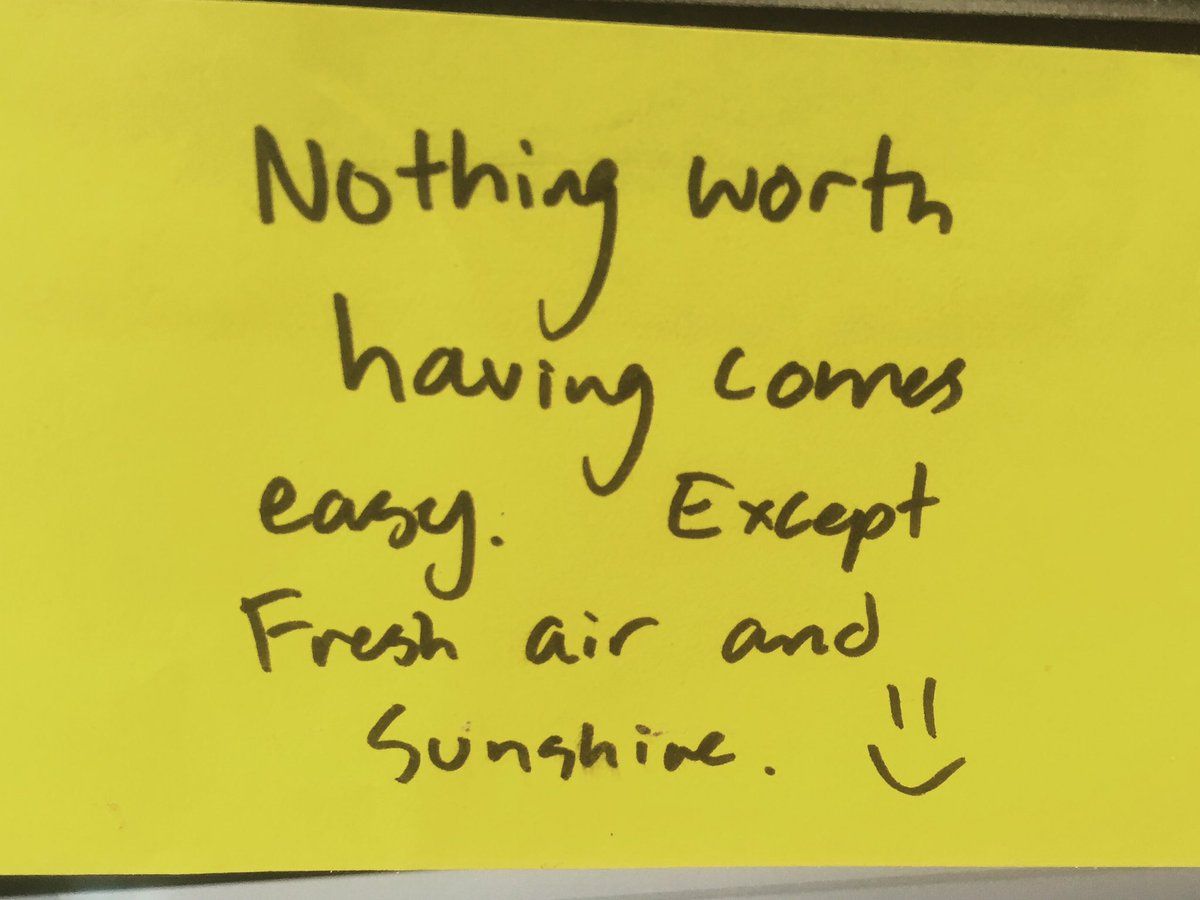 Nothing worth
having comes
easy. Except
Fresh air and
Sunshine.